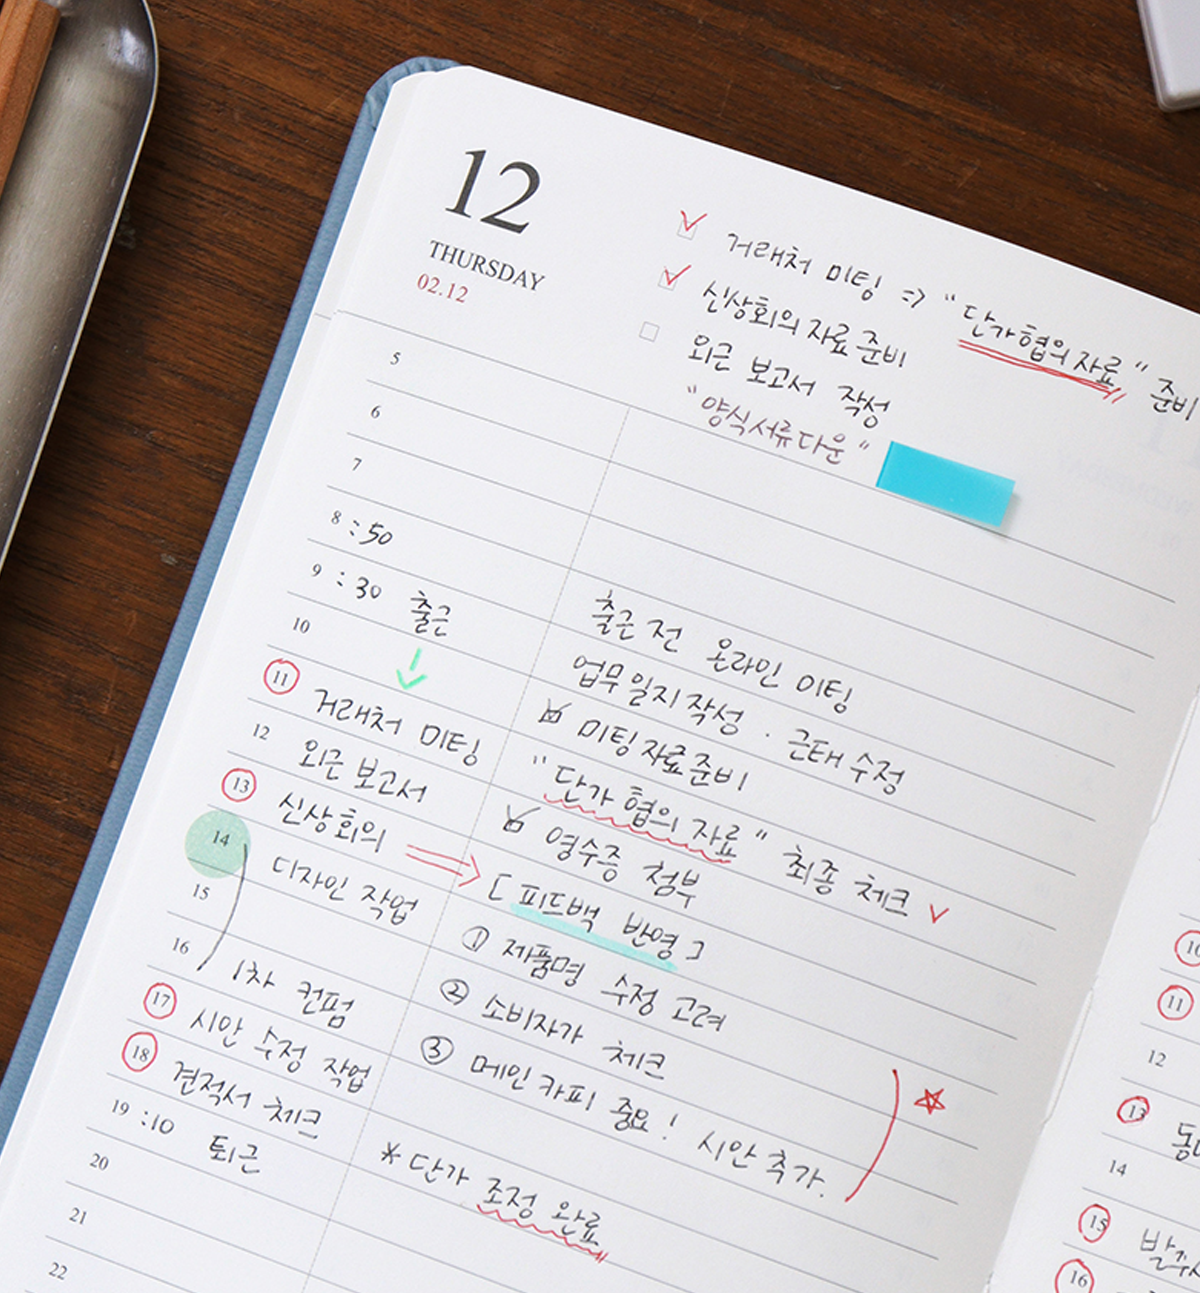 12
THURSDAY
02.12
거래처 미팅 => "단가협의자료" 준비
신상회의 자료 준비
외근 보고서 작성
"양식서류다운"
5
6
7
8 :50
9 :30 출근
출근 전 온라인 미팅
10
업무일지작성 · 근태수정
11 거래처 미팅
미팅자료준비
12 외근 보고서
"단가 협의 자료" 최종 체크
13 신상회의
영수증 첨부
14 디자인 작업
[피드백 반영]
15
① 제품명 수정 고려
16 1차 컨펌
② 소비자가 체크
17 시안 수정 작업
③ 메인카피 중요! 시안 추가.
18 견적서 체크
19 :10 퇴근
* 단가 조정 완료
20
21
22
10
11
12
13
14
15
16